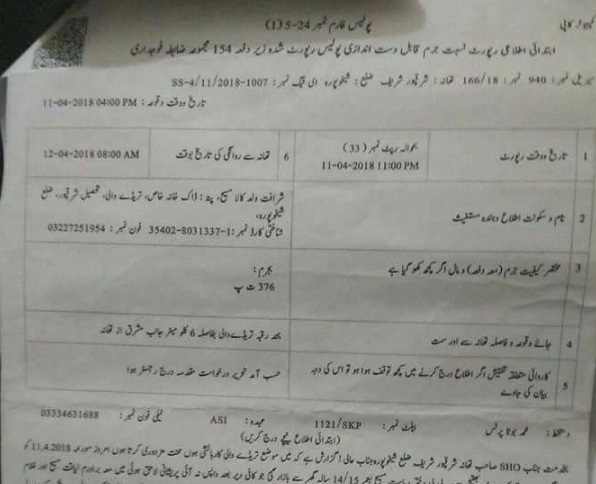 کمپیوٹر کاپی
پولیس فارم نمبر 24-5 (1)
ابتدائی اطلاعی رپورٹ نسبت جرم قابل دست اندازی پولیس رپورٹ شدہ زیر دفعہ 154 مجموعہ ضابطہ فوجداری
سیریل نمبر: 940 نمبر: 166/18 تھانہ: شرقپور شریف ضلع: شیخوپورہ ای ٹیگ نمبر: SS-4/11/2018-1007
تاریخ ووقت وقوعہ: 11-04-2018 04:00 PM
1 تاریخ ووقت رپورٹ بحوالہ رپٹ نمبر (33) 11-04-2018 11:00 PM 6 تھانہ سے روانگی کی تاریخ بوقت 12-04-2018 08:00 AM
2 نام و سکونت اطلاع دہندہ مستغیث شرافت ولد کالا مسیح، پتہ: ڈاک خانہ خاص، تریڈے والی، تحصیل شرقپور، ضلع
شیخوپورہ،
شناختی کارڈ نمبر: 35402-8031337-1 فون نمبر: 03227251954
3 مختصر کیفیت جرم (معہ دفعہ) و مال اگر کچھ کھو گیا ہے جرم:
376 ت پ
4 جائے وقوعہ و فاصلہ تھانہ سے اور سمت بحد رقبہ تریڈے والی بفاصلہ 6 کلو میٹر جانب مشرق از تھانہ
5 کاروائی متعلقہ تفتیش اگر اطلاع درج کرنے میں کچھ توقف ہوا ہو تو اس کی وجہ
بیان کی جاوے حسب آمد تحریر درخواست مقدمہ درج رجسٹر ہوا
دستخط: محمد بوٹا پرنس بیلٹ نمبر: 1121/SKP عہدہ: ASI ٹیلی فون نمبر: 03334631688
(ابتدائی اطلاع نیچے درج کریں)
بخدمت جناب SHO صاحب تھانہ شرقپور شریف ضلع شیخوپورہ جناب عالی! گزارش ہے کہ میں موضع تریڈے والی کا رہائشی ہوں محنت مزدوری کرتا ہوں امروز مورخہ 11.4.2018 کو
مسیح بعمر 14/15 سالہ گھر سے بازار گئی جو کافی دیر بعد واپس نہ آئی پریشانی لاحق ہوئی میں معہ برادرم لیاقت مسیح اور غلام